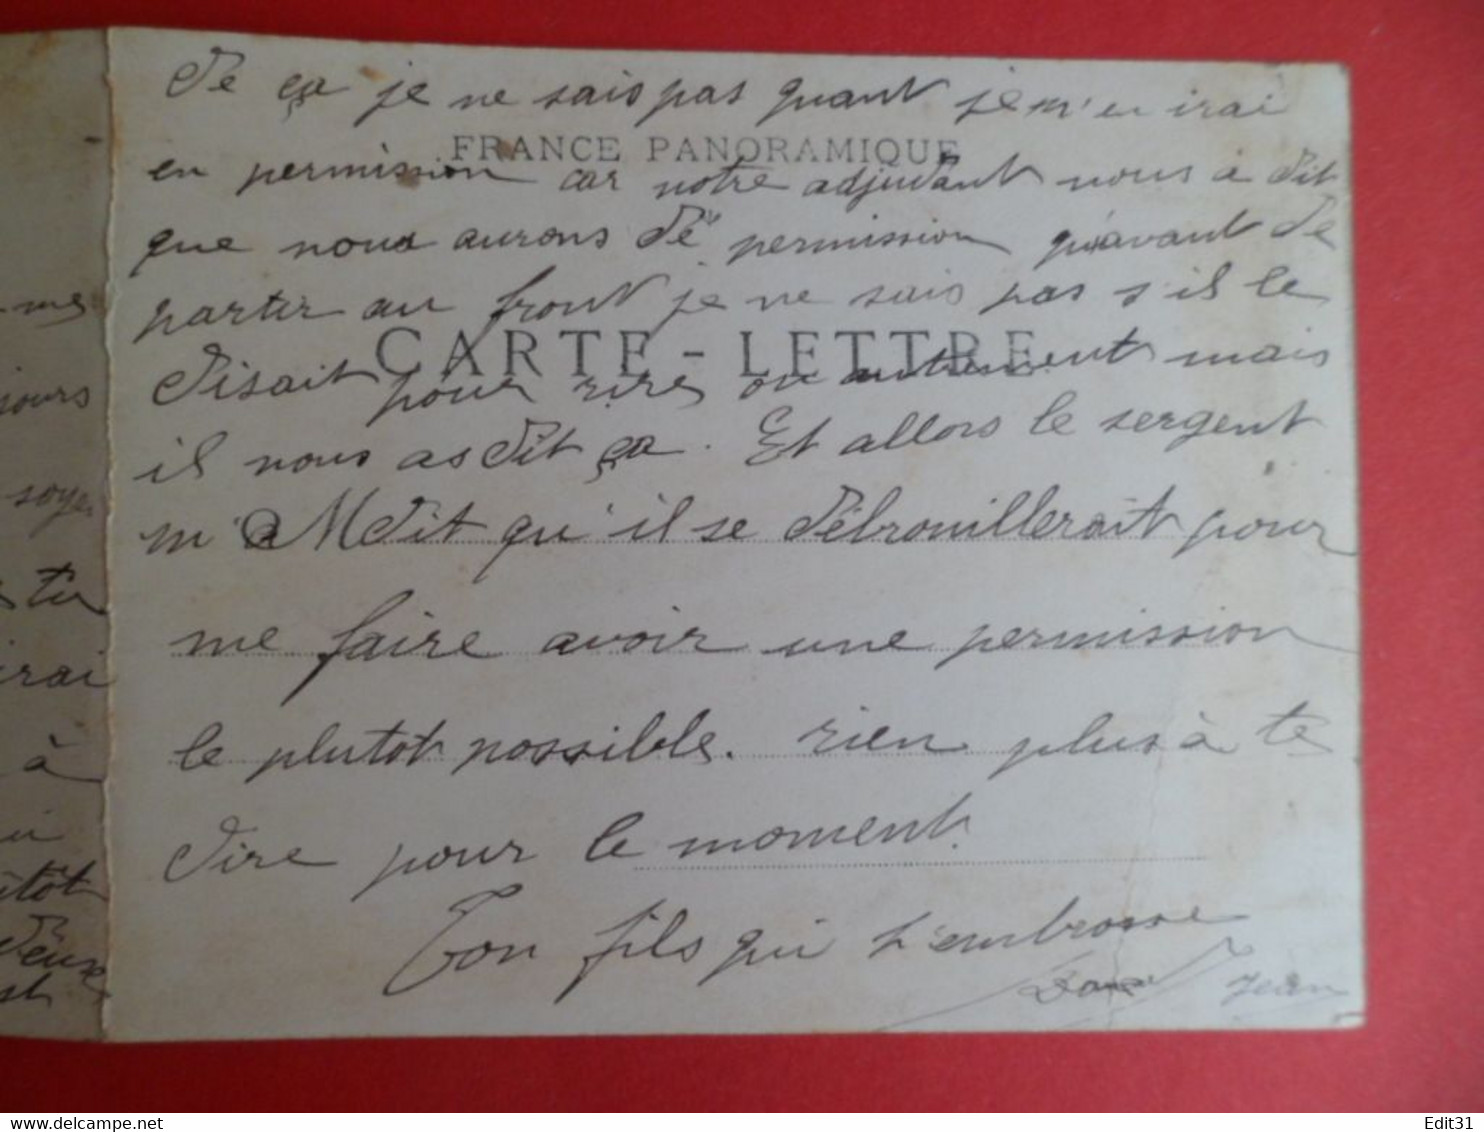 De ça je ne sais pas quant je m'en irai
FRANCE PANORAMIQUE
en permission car notre adjudant nous à dit
que nous aurons de permission qu'avant de
partir au front je ne sais pas s'il le
CARTE-LETTRE
disait pour rire ou autrement mais
il nous as dit ça. Et allors le sergent
m'a dit qu'il se débrouillerait pour
me faire avoir une permission
le plutot possible. rien plus à te
dire pour le moment.
Ton fils qui t'embrasse
Jean
mes
jours
soye
tu
irai
à
tôt
Edit31
delcampe.net